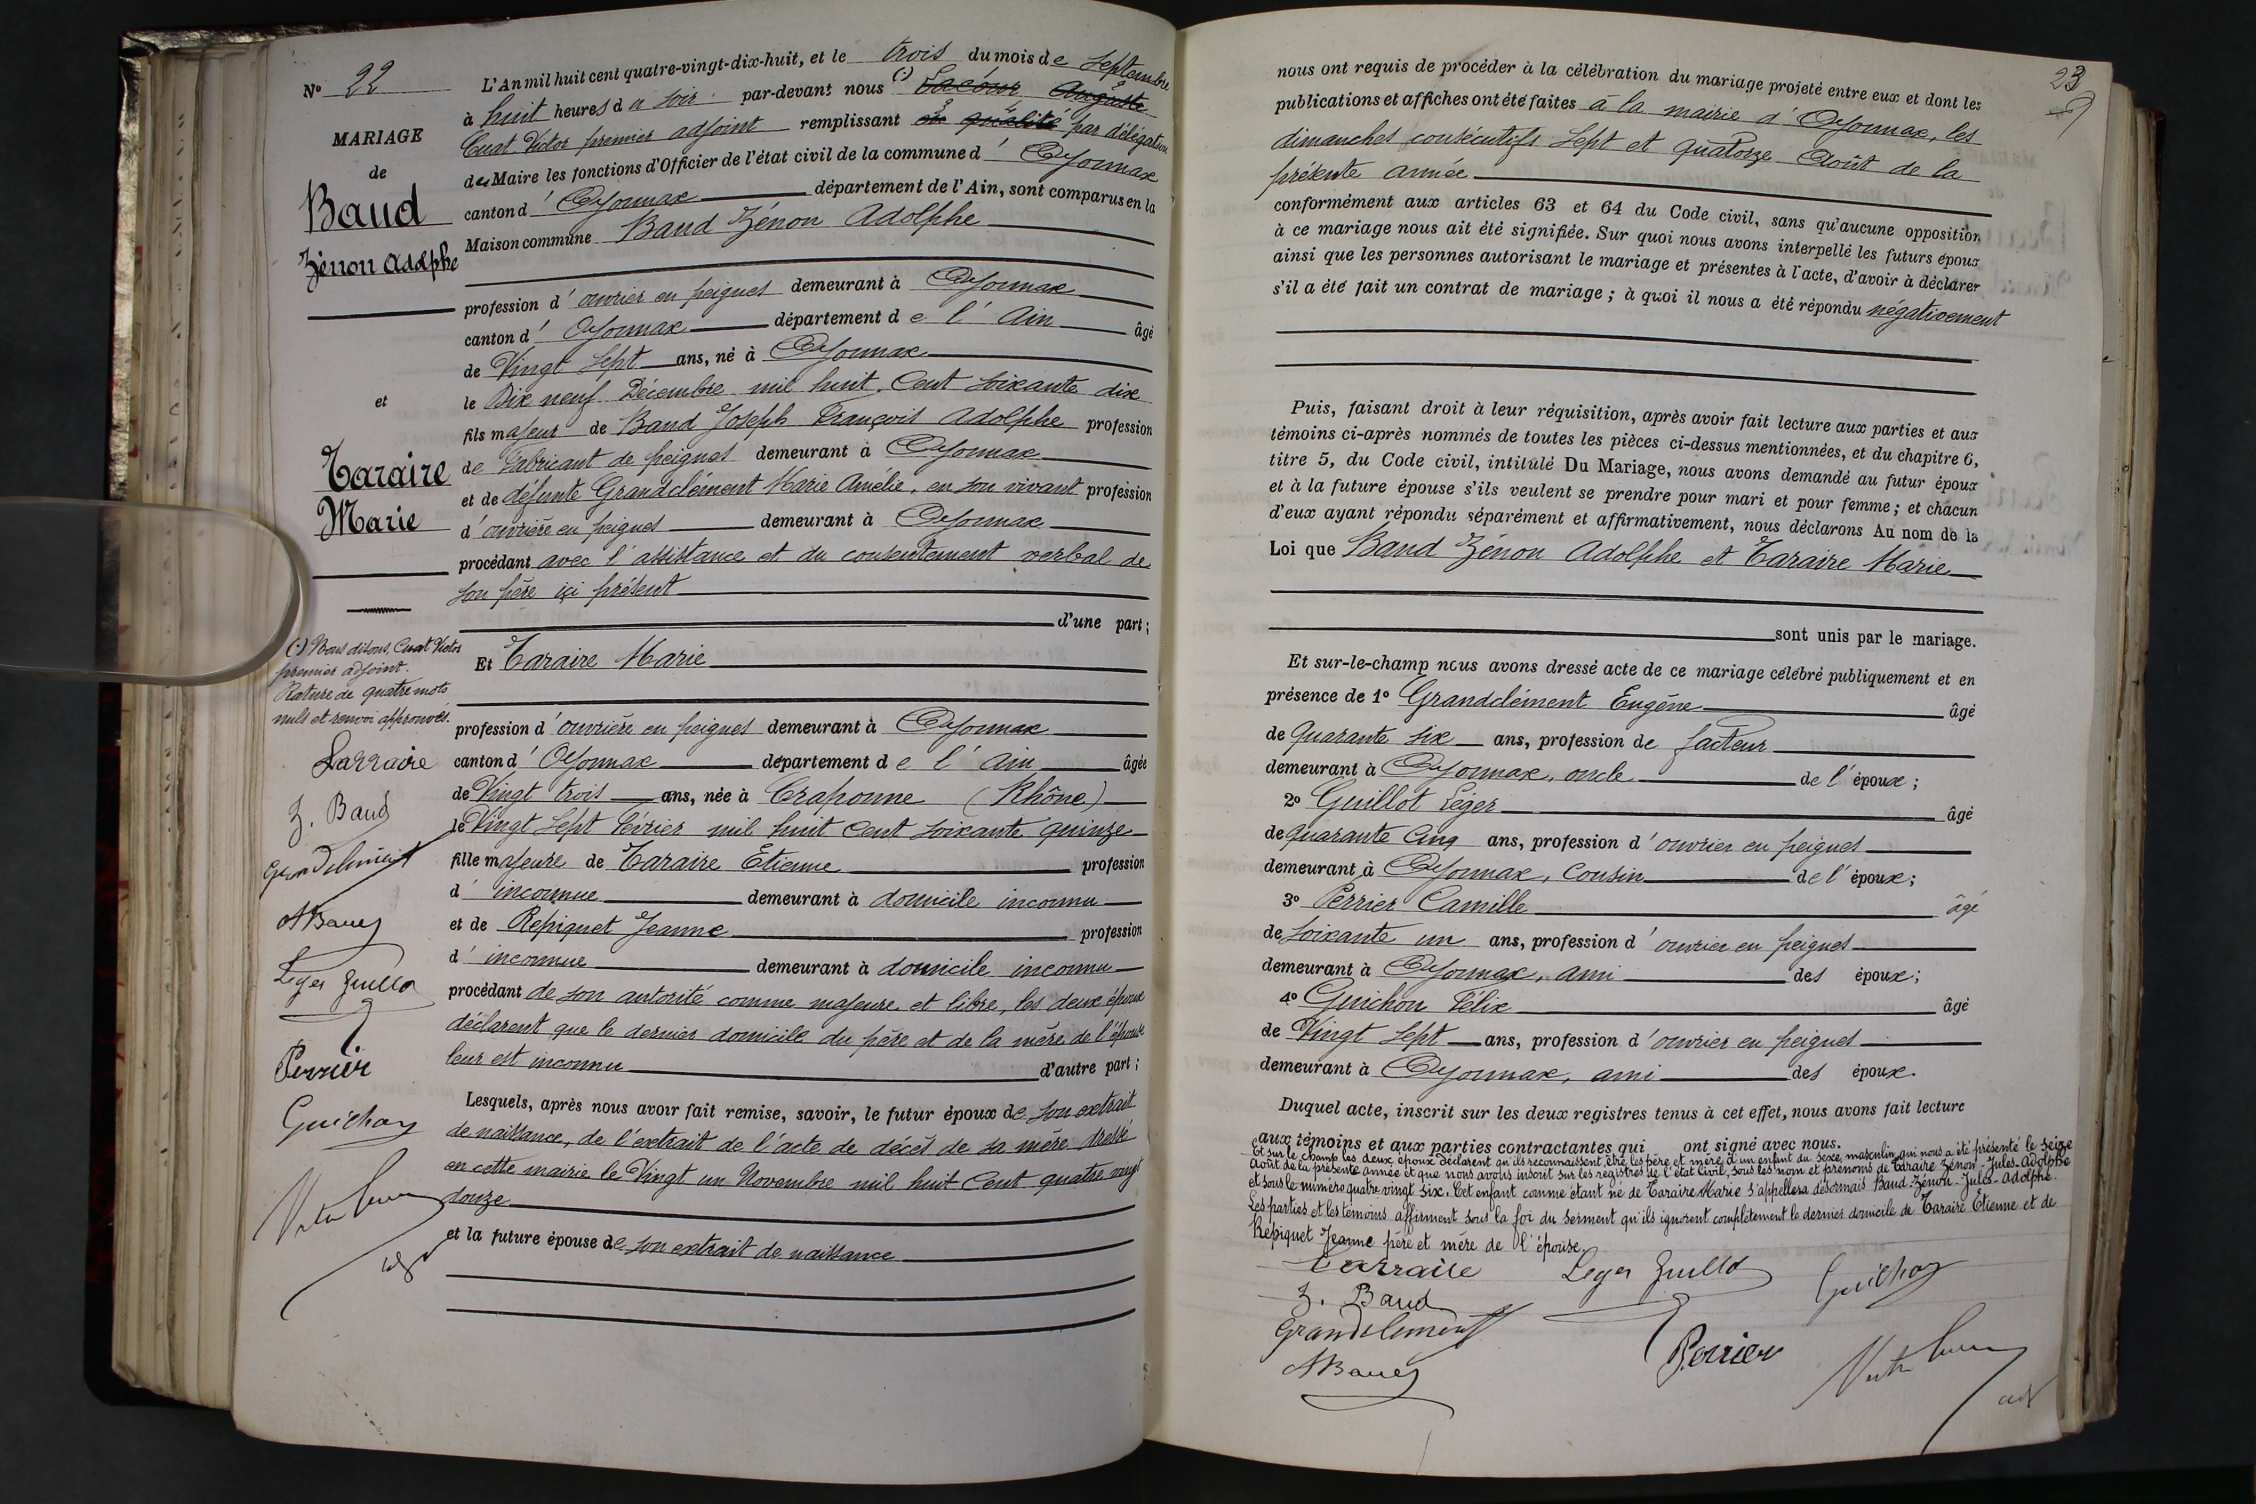 N° 22
MARIAGE
de
Baud
Zénon Adolphe
et
Taraire
Marie
(.) Nous disons, Cuat Victor
premier adjoint.
Rature de quatre mots
nuls et renvoi approuvés.
Tarraire
Z. Baud
Grandclément
A Baud
Leger Guillot
Perrier
Guichon
Victor Cuat
adj
L'An mil huit cent quatre-vingt-dix-huit, et le trois du mois de Septembre
à huit heures du soir par-devant nous (.) Lacour Auguste
Cuat Victor premier adjoint remplissant en qualité par délégation
des Maire les fonctions d'Officier de l'état civil de la commune d'Oyonnax
canton d'Oyonnax département de l'Ain, sont comparus en la
Maison commune Baud Zénon Adolphe
profession d'ouvrier en peignes demeurant à Oyonnax
canton d'Oyonnax département de l'Ain âgé
de Vingt sept ans, né à Oyonnax
le Dix neuf Décembre mil huit Cent soixante dix
fils majeur de Baud Joseph François Adolphe profession
de Fabricant de peignes demeurant à Oyonnax
et de défunte Grandclément Marie Amélie, en son vivant profession
d'ouvrière en peignes demeurant à Oyonnax
procédant avec l'assistance et du consentement verbal de
son père ici présent
d'une part;
Et Taraire Marie
profession d'ouvrière en peignes demeurant à Oyonnax
canton d'Oyonnax département de l'Ain âgée
de Vingt trois ans, née à Craponne (Rhône)
le Vingt sept Février mil huit Cent soixante quinze
fille majeure de Taraire Etienne profession
d'inconnue demeurant à domicile inconnu
et de Repiquet Jeanne profession
d'inconnue demeurant à domicile inconnu
procédant de son autorité comme majeure et libre, les deux époux
déclarent que le dernier domicile du père et de la mère de l'épouse
leur est inconnu d'autre part;
Lesquels, après nous avoir fait remise, savoir, le futur époux de son extrait
de naissance, de l'extrait de l'acte de décès de sa mère dressé
en cette mairie le Vingt un Novembre mil huit Cent quatre vingt
douze
et la future épouse de son extrait de naissance
23
nous ont requis de procéder à la célébration du mariage projeté entre eux et dont les
publications et affiches ont été faites à la mairie d'Oyonnax, les
dimanches consécutifs sept et quatorze Août de la
présente année
conformément aux articles 63 et 64 du Code civil, sans qu'aucune opposition
à ce mariage nous ait été signifiée. Sur quoi nous avons interpellé les futurs époux
ainsi que les personnes autorisant le mariage et présentes à l'acte, d'avoir à déclarer
s'il a été fait un contrat de mariage; à quoi il nous a été répondu négativement
Puis, faisant droit à leur réquisition, après avoir fait lecture aux parties et aux
témoins ci-après nommés de toutes les pièces ci-dessus mentionnées, et du chapitre 6,
titre 5, du Code civil, intitulé Du Mariage, nous avons demandé au futur époux
et à la future épouse s'ils veulent se prendre pour mari et pour femme; et chacun
d'eux ayant répondu séparément et affirmativement, nous déclarons Au nom de la
Loi que Baud Zénon Adolphe et Taraire Marie
sont unis par le mariage.
Et sur-le-champ nous avons dressé acte de ce mariage célébré publiquement et en
présence de 1° Grandclément Eugène âgé
de Quarante six ans, profession de facteur
demeurant à Oyonnax, oncle de l'époux;
2° Guillot Léger âgé
de quarante Cinq ans, profession d'ouvrier en peignes
demeurant à Oyonnax, Cousin de l'époux;
3° Perrier Camille âgé
de Soixante un ans, profession d'ouvrier en peignes
demeurant à Oyonnax, ami des époux;
4° Guichon Félix âgé
de Vingt sept ans, profession d'ouvrier en peignes
demeurant à Oyonnax, ami des époux.
Duquel acte, inscrit sur les deux registres tenus à cet effet, nous avons fait lecture
aux témoins et aux parties contractantes qui ont signé avec nous.
Et sur le champ les deux époux déclarent qu'ils reconnaissent être les père et mère d'un enfant du sexe masculin qui nous a été présenté le seize
Août de la présente année et que nous avons inscrit sur les registres de l'état civil, sous les nom et prénoms de Taraire Zénon-Jules-Adolphe
et sous le numéro quatre vingt six. Cet enfant comme étant né de Taraire Marie s'appellera désormais Baud-Zénon-Jules-Adolphe.
Les parties et les témoins affirment sous la foi du serment qu'ils ignorent complètement le dernier domicile de Taraire Etienne et de
Repiquet Jeanne père et mère de l'épouse.
Tarraire Leger Guillot Guichon
Z. Baud
Grandclément
Perrier Victor Cuat
A Baud
adj